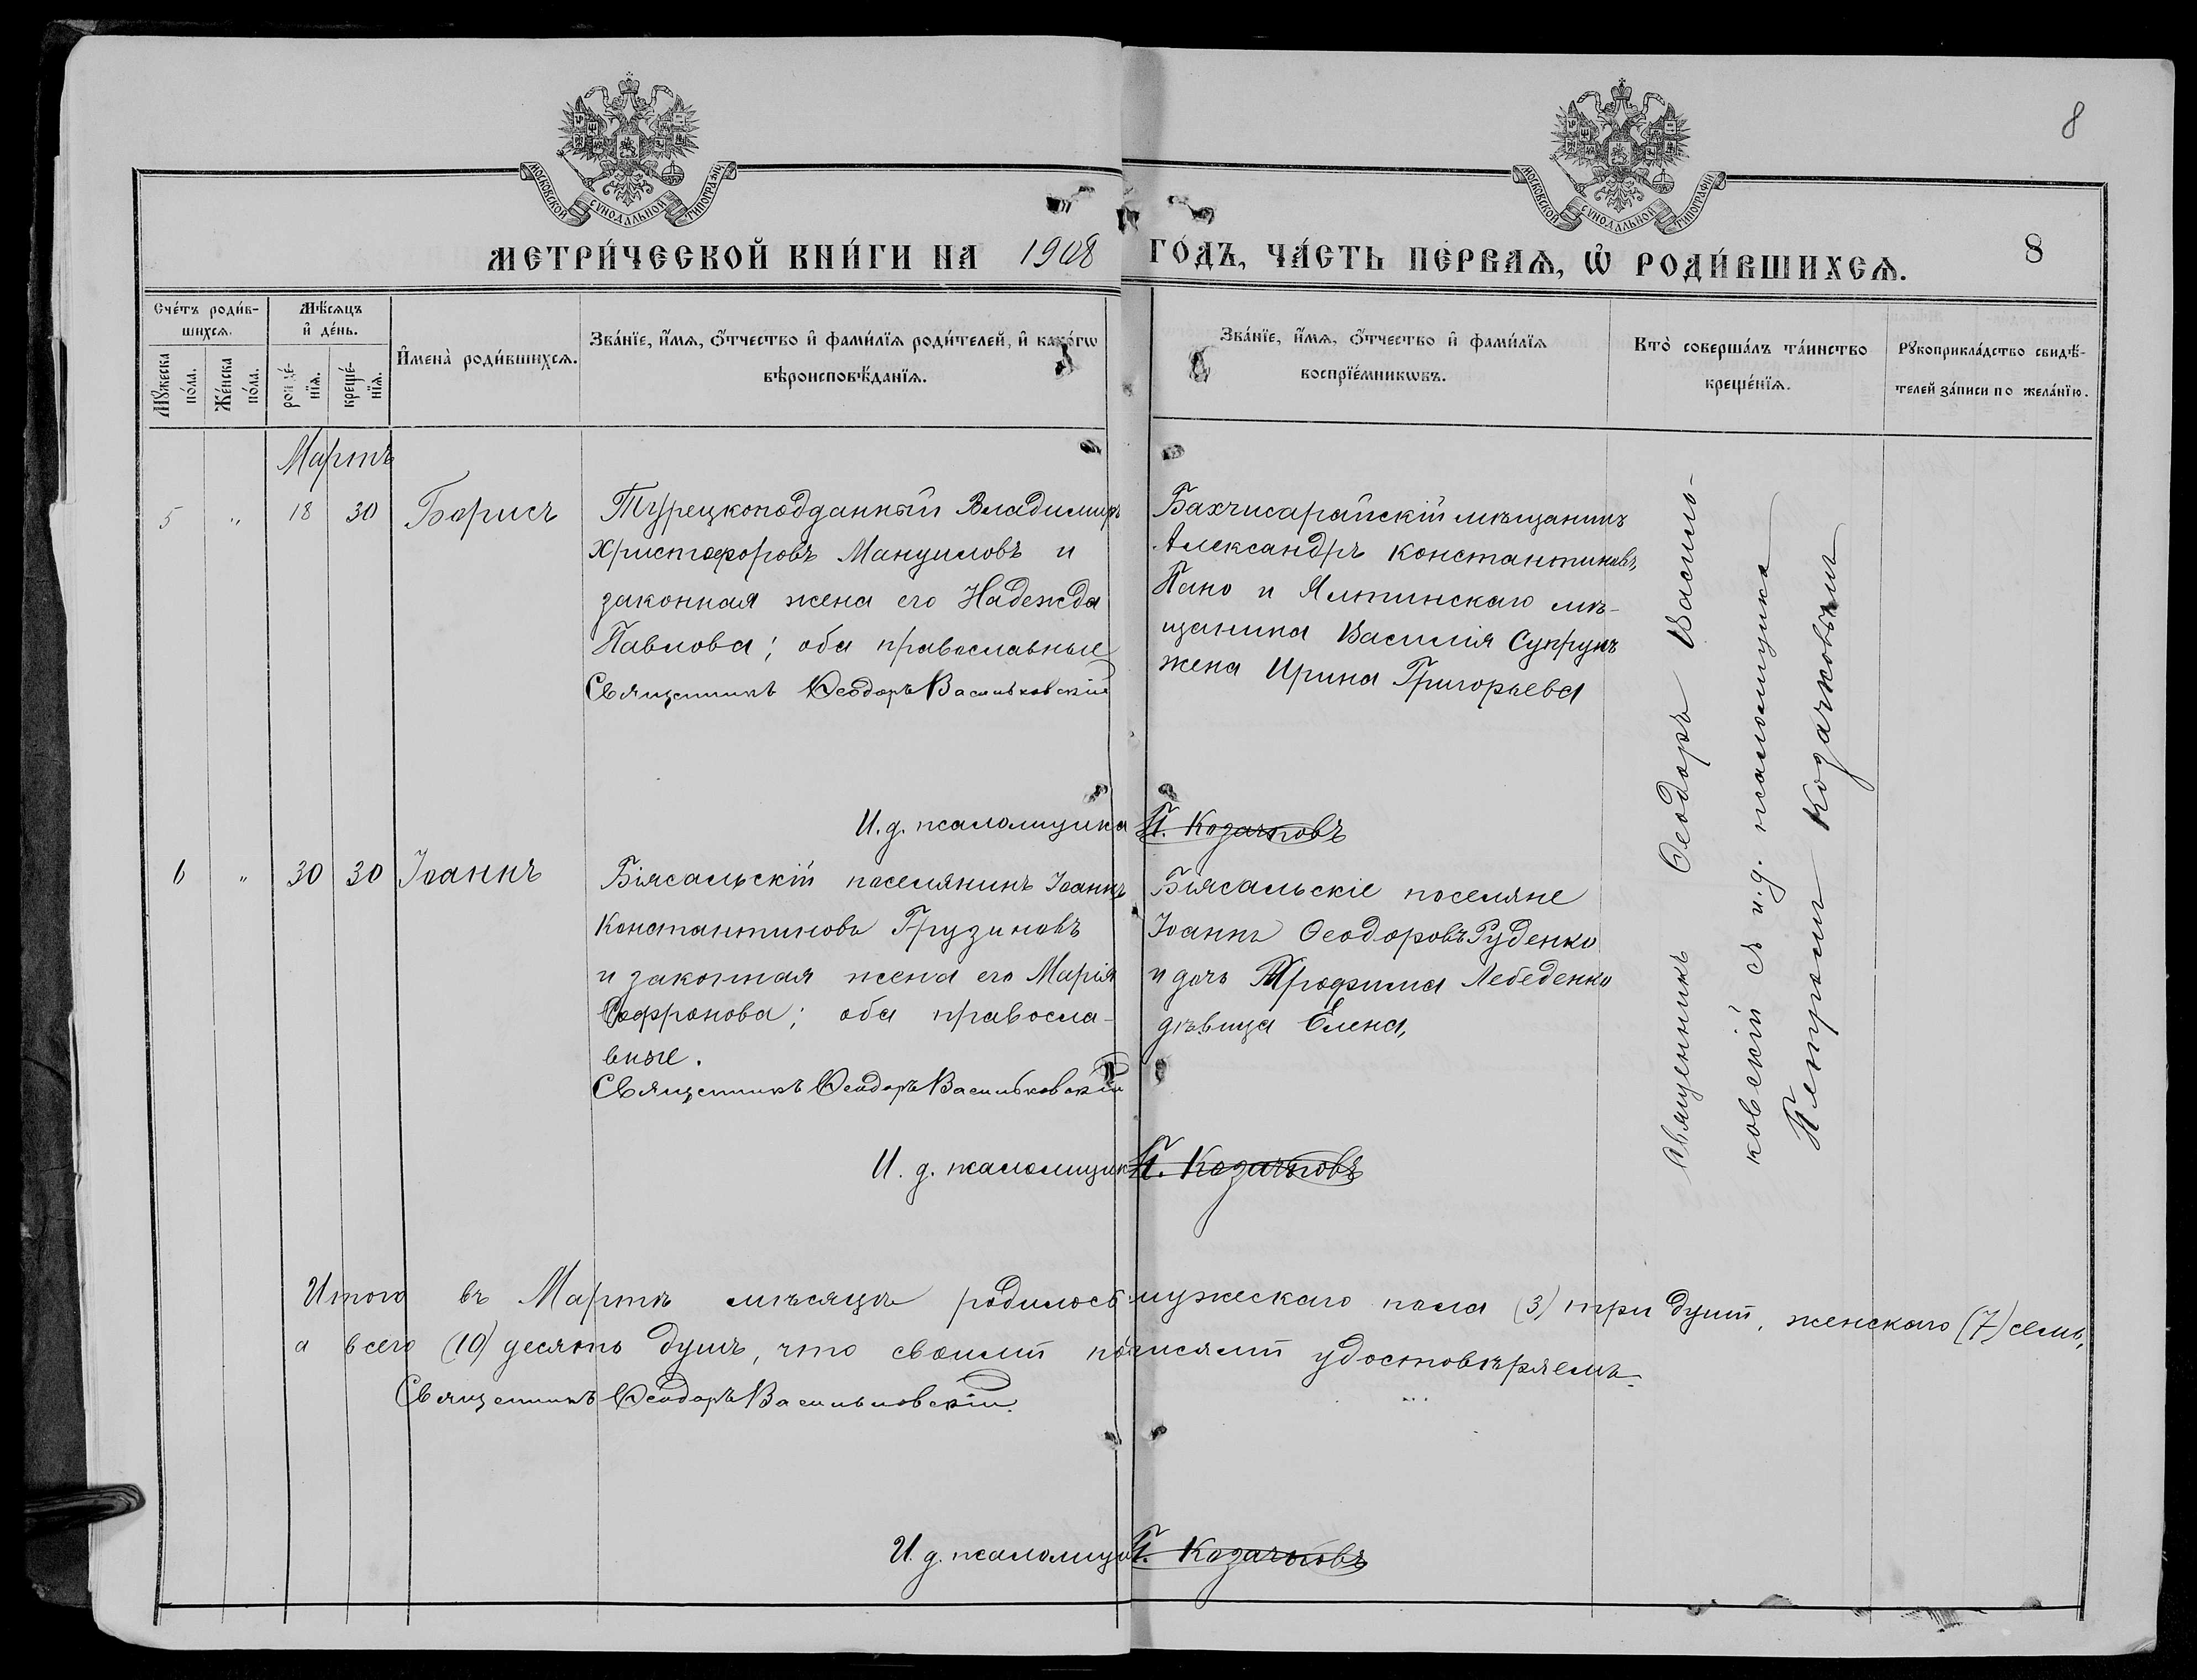 8
МОСКОВСКОЙ СУНОДАЛЬНОЙ ТИПОГРАФІИ
МОСКОВСКОЙ СУНОДАЛЬНОЙ ТИПОГРАФІИ
МЕТРИ́ЧЕСКОЙ КНИ́ГИ НА 1908 ГО́ДЪ, ЧА́СТЬ ПЕ́РВАЯ, Ѡ҆ РОДИ́ВШИХСѦ. 8
Сче́тъ роди́в-
шихсѧ.
Мꙋ́жеска по́ла.
Же́нска по́ла.
Мѣ́сѧцъ
и҆ де́нь.
рожде́-
нїѧ.
креще́-
нїѧ.
И҆мена̀ роди́вшихсѧ.
Зва́нїе, и҆́мѧ, ѻ҆́тчество и҆ фами́лїѧ роди́телей, и҆ како́гѡ
вѣроисповѣ́данїѧ.
Зва́нїе, и҆́мѧ, ѻ҆́тчество и҆ фами́лїѧ
воспрїе́мникѡвъ.
Кто̀ соверша́лъ та́инство
креще́нїѧ.
Рꙋкоприкла́дство свидѣ́-
телей за́писи по жела́нїю.
Мартъ
5 " 18 30 Борисъ
Турецкоподданный Владимиръ
Христофоровъ Мануиловъ и
законная жена его Надежда
Павлова; оба православные
Священникъ Ѳеодоръ Васильковскій
Бахчисарайскій мѣщанинъ
Александръ Константиновъ
Пано и Ялтинскаго мѣ-
щанина Василія Супрунъ
жена Ирина Григорьева
И. д. псаломщика П. Козачковъ
6 " 30 30 Іоаннъ
Біясальскій поселянинъ Іоаннъ
Константиновъ Грузиновъ
и законная жена его Марія
Софронова; оба правосла-
вные.
Священникъ Ѳеодоръ Васильковскій
Біясальскіе поселяне
Іоаннъ Ѳеодоровъ Руденко
и дочь Трофима Лебеденко
дѣвица Елена,
И. д. псаломщика П. Козачковъ
Священникъ Ѳеодоръ Василь-
ковскій съ и.д. псаломщика
Петромъ Козачковымъ
Итого въ Мартѣ мѣсяцѣ родилось мужескаго пола (3) три душъ, женскаго (7) семь,
а всего (10) десять душъ, что своимъ подписямъ удостовѣряемъ.
Священникъ Ѳеодоръ Васильковскій.
И. д. псаломщика П. Козачковъ